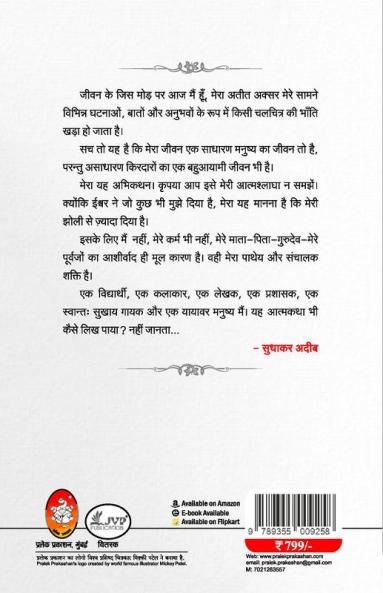 जीवन के जिस मोड़ पर आज मैं हूँ, मेरा अतीत अक्सर मेरे सामने
विभिन्न घटनाओं, बातों और अनुभवों के रूप में किसी चलचित्र की भाँति
खड़ा हो जाता है।
सच तो यह है कि मेरा जीवन एक साधारण मनुष्य का जीवन तो है,
परन्तु असाधारण किरदारों का एक बहुआयामी जीवन भी है।
मेरा यह अभिकथन। कृपया आप इसे मेरी आत्मश्लाघा न समझें।
क्योंकि ईश्वर ने जो कुछ भी मुझे दिया है, मेरा यह मानना है कि मेरी
झोली से ज़्यादा दिया है।
इसके लिए मैं नहीं, मेरे कर्म भी नहीं, मेरे माता-पिता-गुरुदेव-मेरे
पूर्वजों का आशीर्वाद ही मूल कारण है। वही मेरा पाथेय और संचालक
शक्ति है।
एक विद्यार्थी, एक कलाकार, एक लेखक, एक प्रशासक, एक
स्वान्तः सुखाय गायक और एक यायावर मनुष्य मैं। यह आत्मकथा भी
कैसे लिख पाया? नहीं जानता...
– सुधाकर अदीब
JVP
PUBLICATION
प्रलेक प्रकाशन, मुंबई
वितरक
प्रलेक प्रकाशन का लोगो विश्व प्रसिद्ध चित्रकार मिक्की पटेल ने बनाया है.
Pralek Prakashan's logo created by world famous illustrator Mickey Patel.
Available on Amazon
E-book Available
Available on Flipkart
9 789355 009258
₹ 799/-
Web: www.pralekprakashan.com
email: pralek.prakashan@gmail.com
M: 7021263557